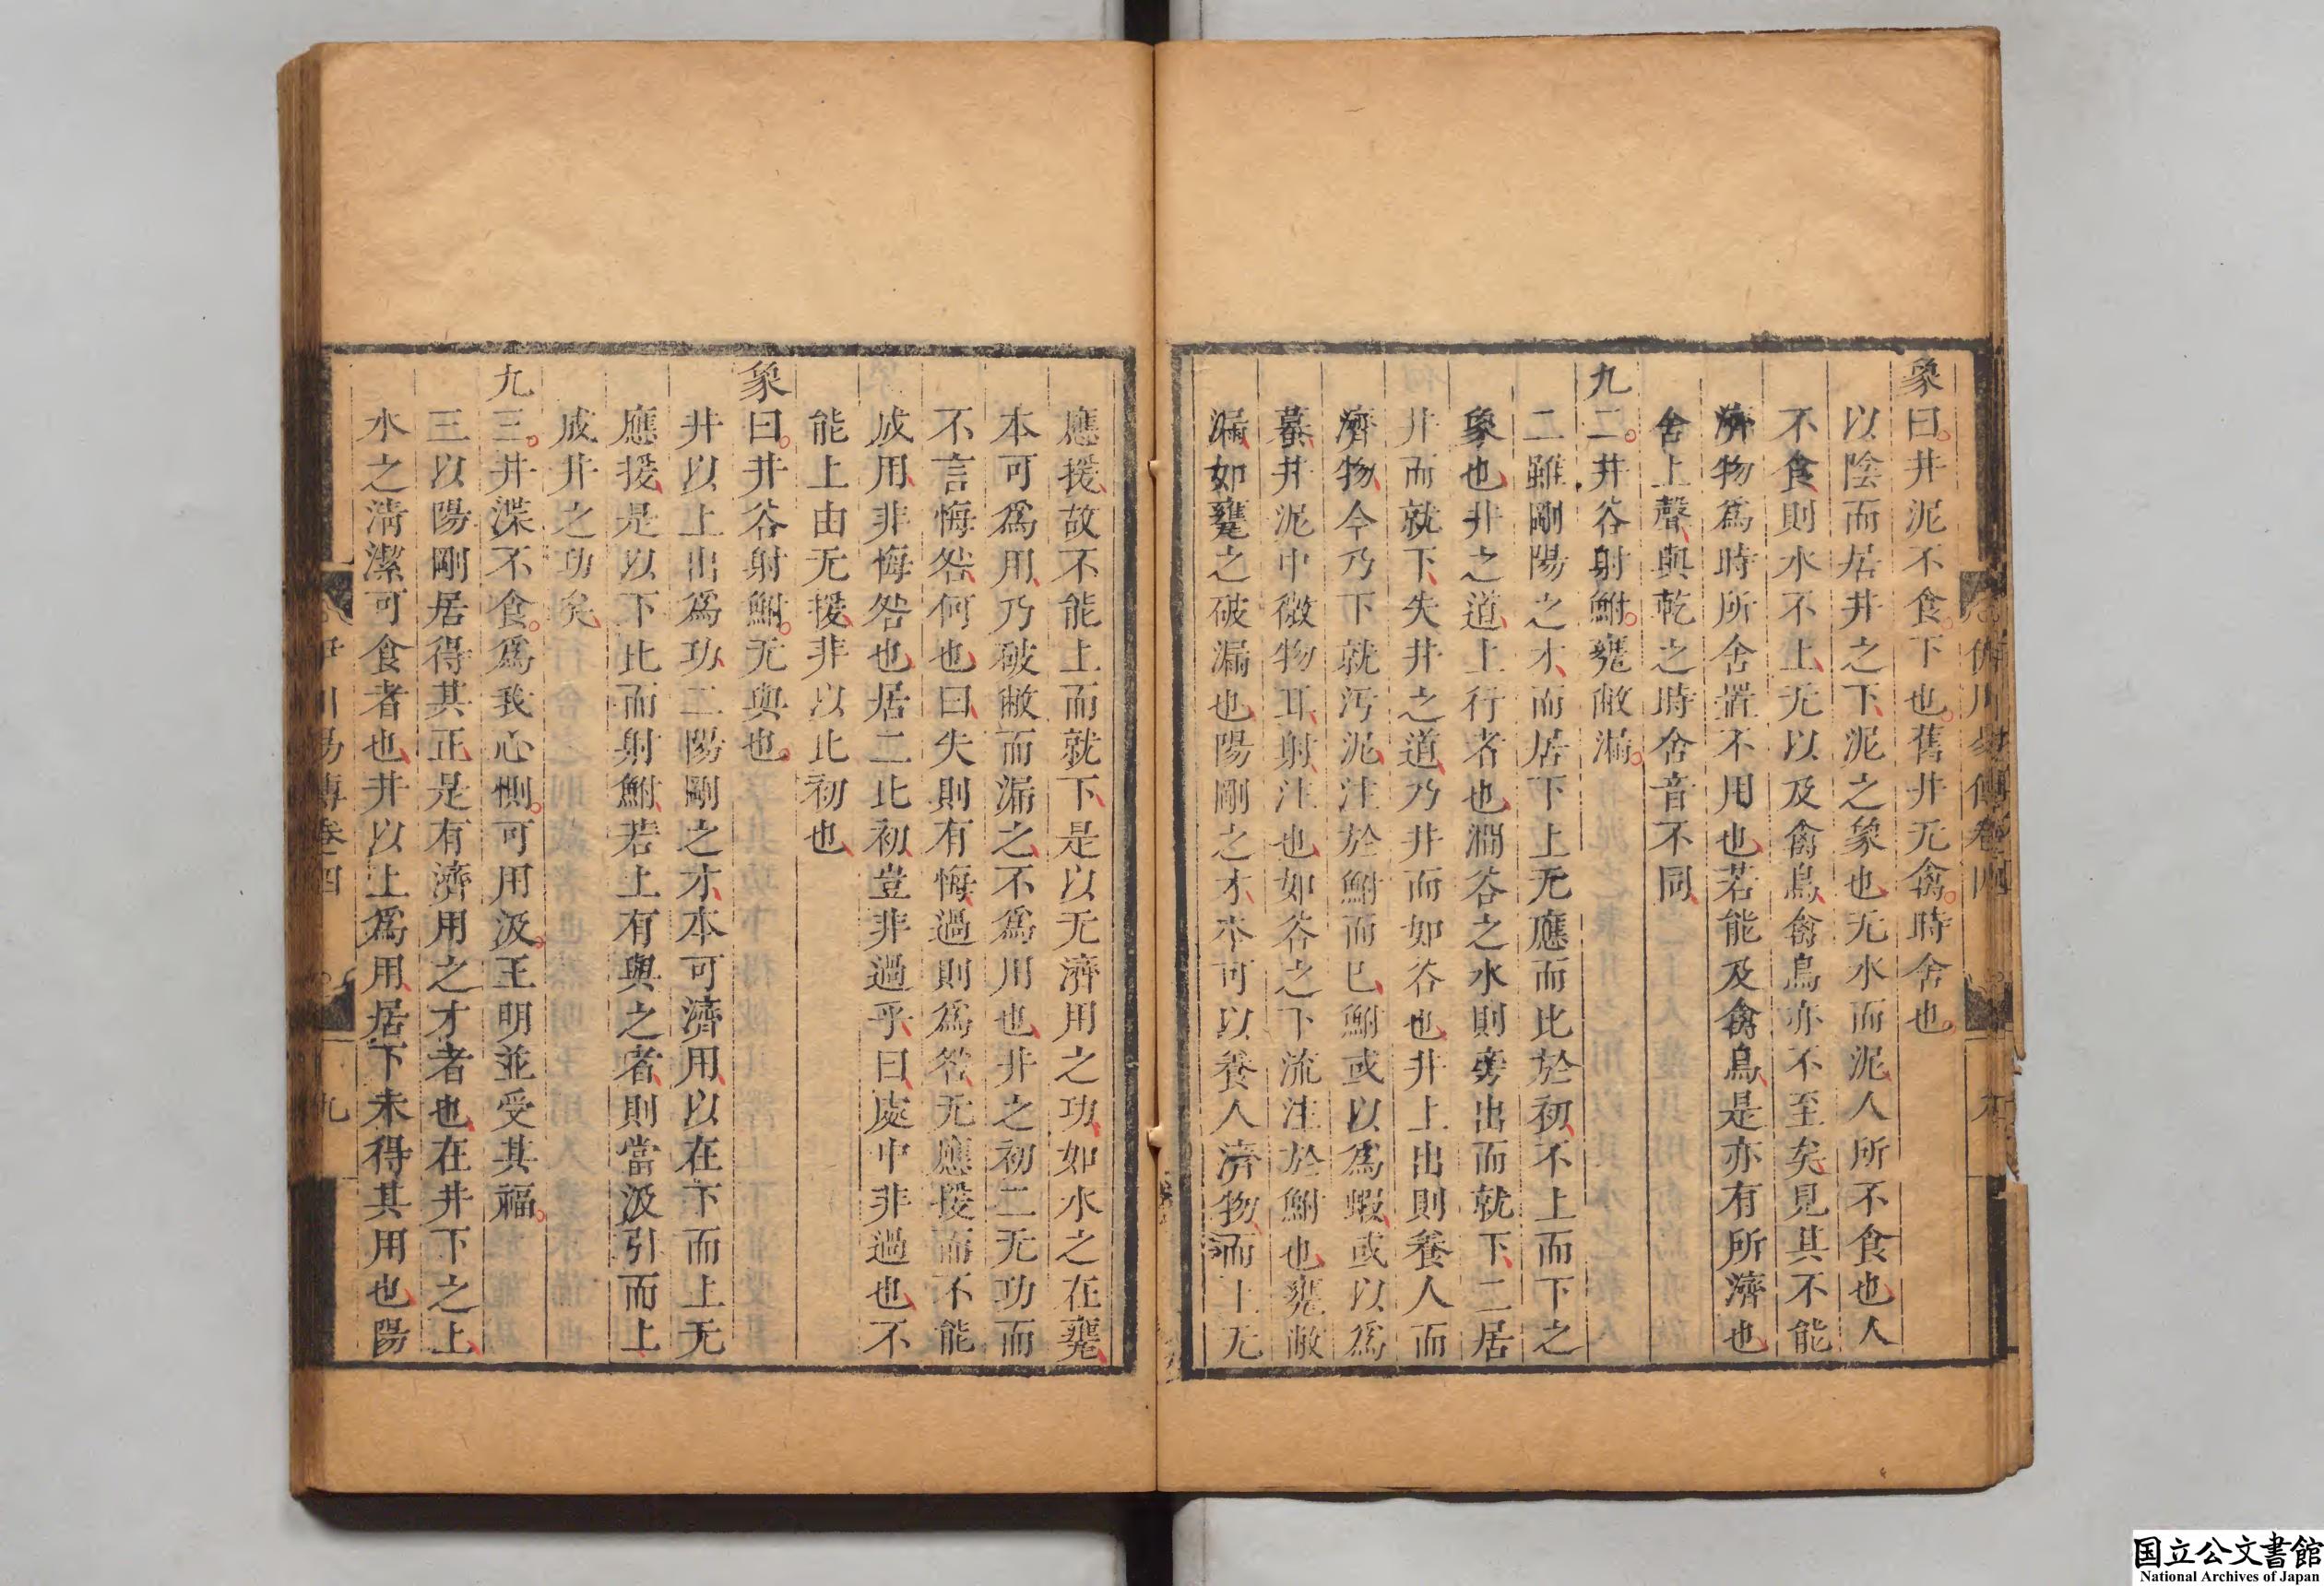 象曰井泥不食下也舊井无禽時舍也
以陰而居井之下泥之象也无水而泥人所不食也人
不食則水不上无以及禽鳥禽鳥亦不至矣見其不能
濟物爲時所舍置不用也若能及禽鳥是亦有所濟也
舍上聲與乾之時舍音不同
九二井谷射鮒甕敝漏
二雖剛陽之才而居下上无應而比於初不上而下之
象也井之道上行者也澗谷之水則旁出而就下二居
井而就下失井之道乃井而如谷也井上出則養人而
濟物今乃下就汚泥注於鮒而已鮒或以爲蝦或以爲
蟇井泥中微物耳射注也如谷之下流注於鮒也甕敝
漏如甕之破漏也陽剛之才本可以養人濟物而上无
應援故不能上而就下是以无濟用之功如水之在甕
本可爲用乃破敝而漏之不爲用也井之初二无功而
不言悔咎何也曰失則有悔過則爲咎无應援而不能
成用非悔咎也居二比初豈非過乎曰處中非過也不
能上由无援非以比初也
象曰井谷射鮒无與也
井以上出爲功二陽剛之才本可濟用以在下而上无
應援是以下比而射鮒若上有與之者則當汲引而上
成井之功矣
九三井渫不食爲我心惻可用汲王明並受其福
三以陽剛居得其正是有濟用之才者也在井下之上
水之清潔可食者也井以上爲用居下未得其用也陽
伊川易傳卷四
九
国立公文書館
National Archives of Japan